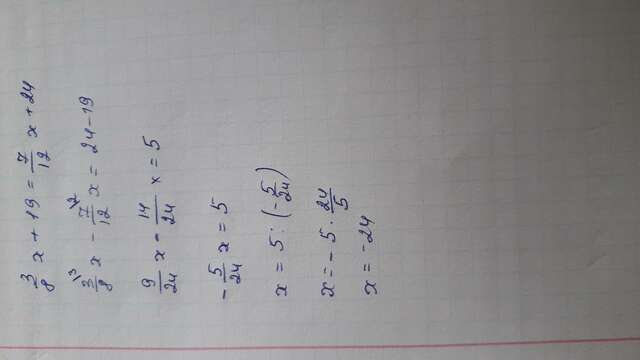 3/8 x + 19 = 7/12 x + 24
3/8 \3 x - 7/12 \2 x = 24 - 19
9/24 x - 14/24 x = 5
- 5/24 x = 5
x = 5 : (- 5/24)
x = - 5 · 24/5
x = - 24